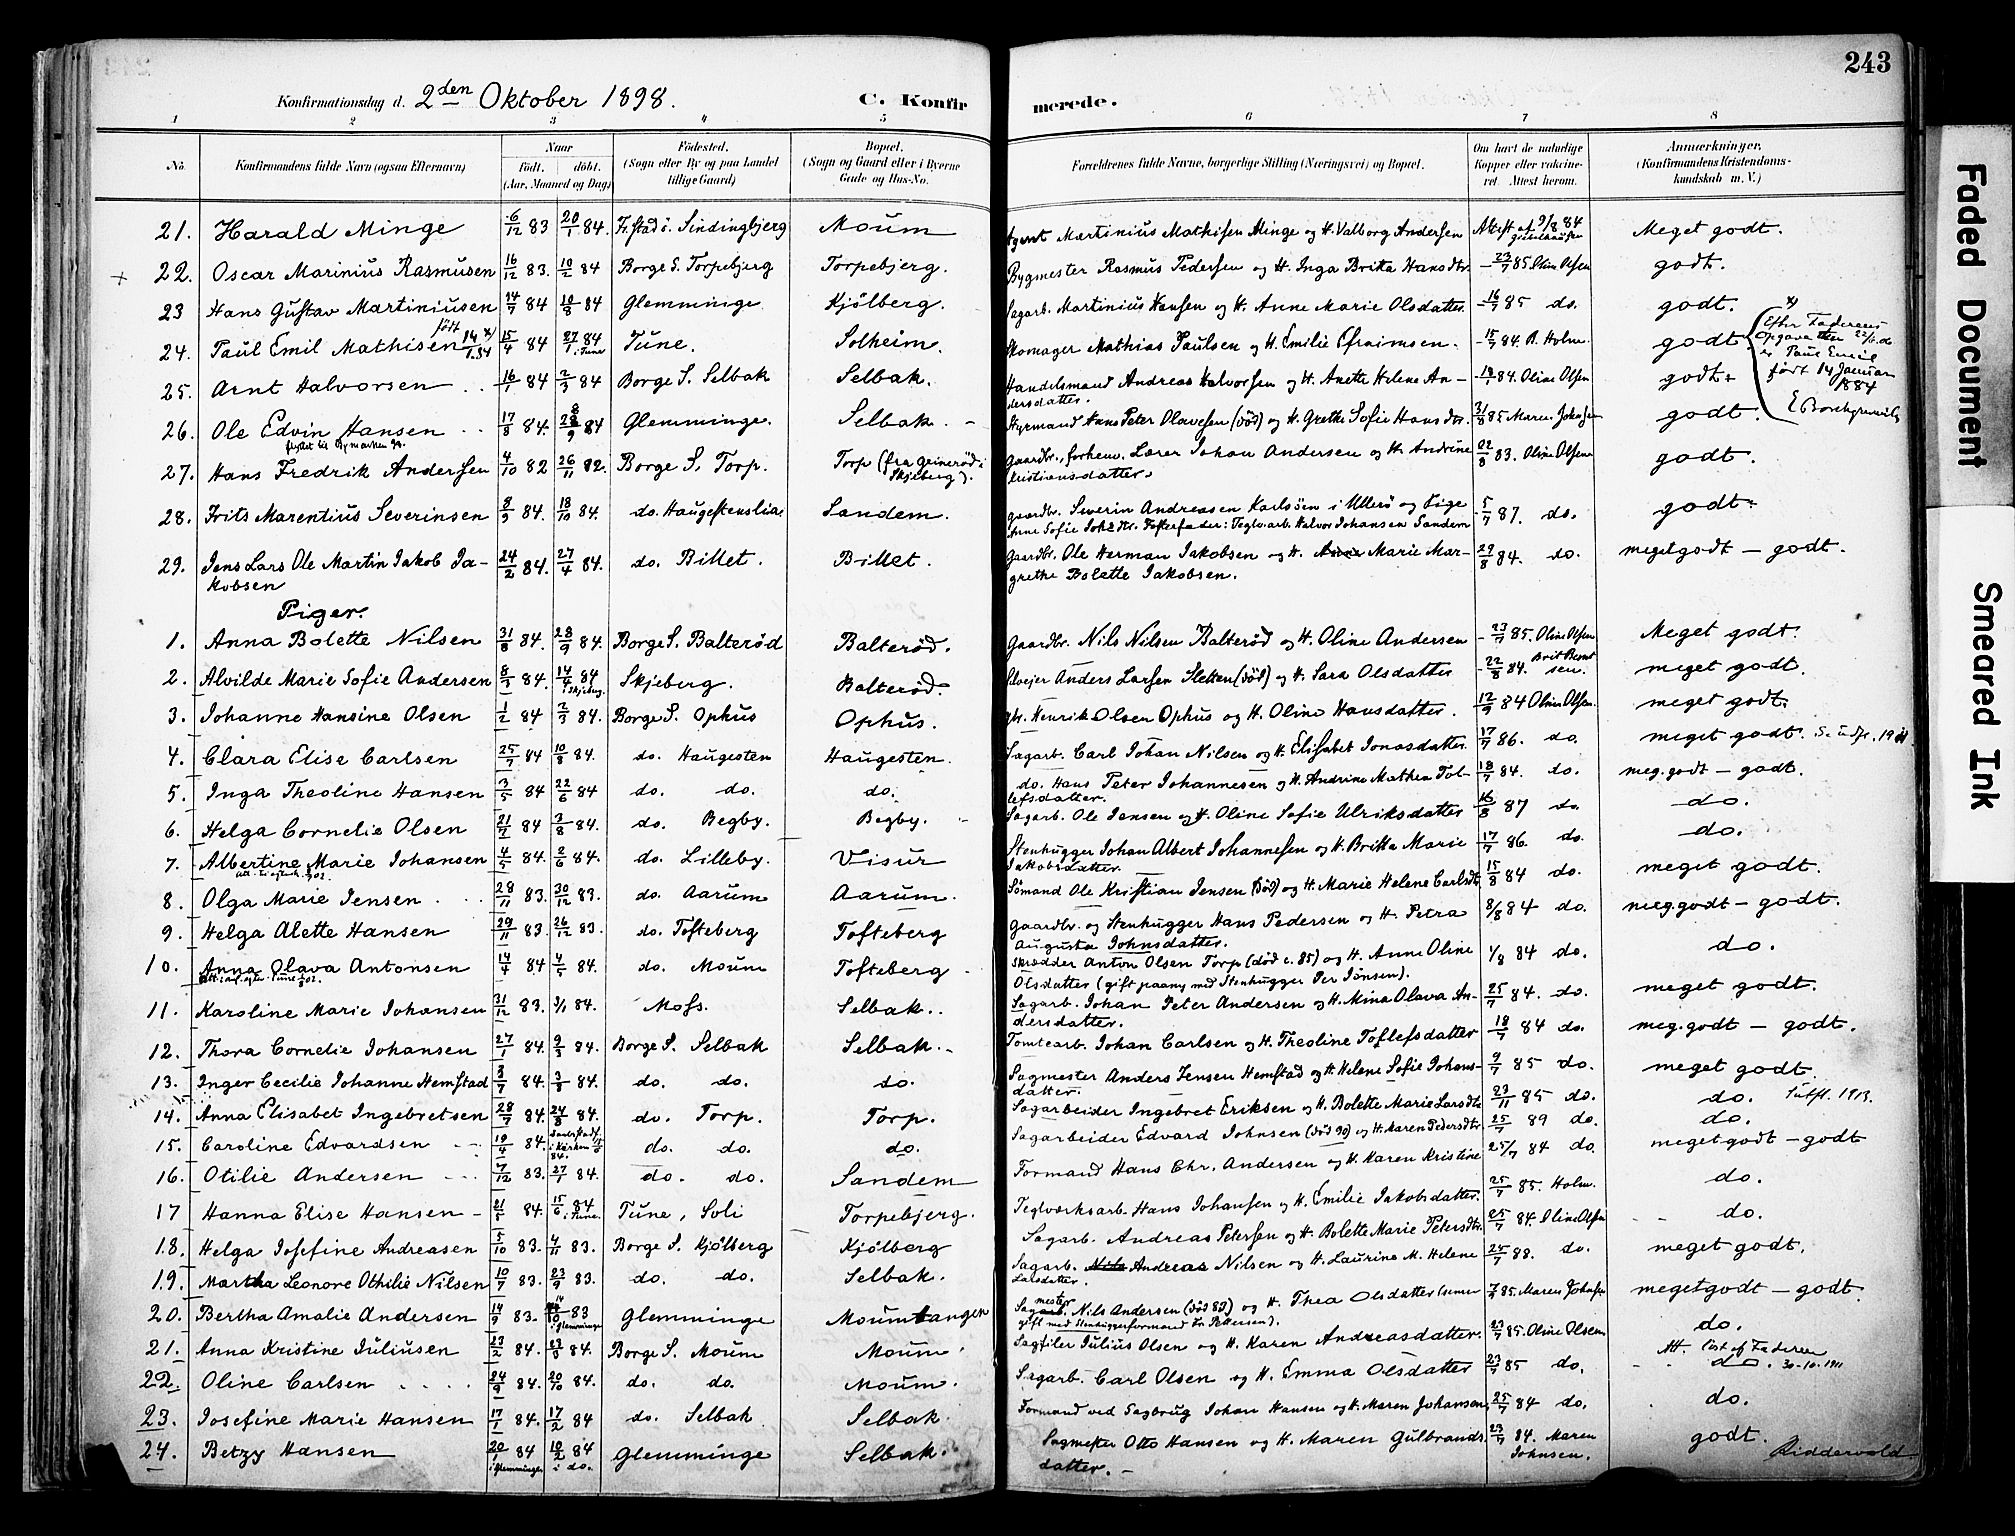 243
Konfirmationsdag d. 2den Oktober 1898. C. Konfirmerede.
1 2 3 4 5 6 7 8
No. Konfirmandens fulde Navn (ogsaa Efternavn) Naar født. døbt. (Aar, Maaned og Dag) Fødested. (Sogn eller By og paa Landet tillige Gaard) Bopæl. (Sogn og Gaard eller i Byerne Gade og Hus-No. Forældrenes fulde Navne, borgerlige Stilling (Næringsvei) og Bopæl. Om havt de naturlige Kopper eller vaccineret. Attest herom. Anmærkninger. (Konfirmandens Kristendomskundskab m. V.)
21. Harald Minge 6/12 83 20/1 84. Fr.stad i. Sindingbjerg Moum Agent Martinius Mathisen Minge og H. Valborg Andersen Attest af 9/8 84 Meget godt.
22. Oscar Marinius Rasmusen 16/12 83. 10/2 84 Borge S. Torpebjerg Torpebjerg. Bygmester Rasmus Pedersen og H. Inga Brita Hansdtr. - 23/7 85 Oline Olsen godt.
23 Hans Gustav Martiniusen 14/7 84 10/8 84 Glemminge Kjölberg. Sagarb. Martinius Hansen og H. Anne Marie Olsdatter. - 16/7 85 do. godt.
24. Paul Emil Mathisen født 14/1.84 x) 15/4 84 27/1 84 i Tune Tune. Solheim. Skomager Mathias Paulsen og H. Emilie Efraimsen. - 15/7 84. R. Holm. godt
x) Efter Faderens Opgave er Paul Emil født 14 Januar 1884
25. Arnt Halvorsen 16/1 84 2/3 84 Borge S. Selbak Selbak. Handelsmand Andreas Halvorsen og H. Anette Helene Andersdatter. - 19/1 84. Oline Olsen godt
26. Ole Edvin Hansen 17/8 84. 28/9 84 Glemminge. Selbak. Styrmand Hans Peter Olavesen (död) og H. Grethe Sofie Hansdtr. 31/8 85. Maren Johnsen godt.
27. Hans Fredrik Andersen 4/10 82 26/11 82. Borge S. Torp. Torp (fra Grimeröd i Skjeberg). Gaardbr., forhenv. Lærer Johan Andersen og H. Andrine Kristiansdatter. 02/8 83. Oline Olsen godt.
28. Frits Marentius Severinsen 8/9 84. 18/10 84. do. Haugestenslia. Sandem. Gaardbr. Severin Andreasen Karlsöen i Ullerö og Pige Anne Sofie Joh.dtr. Fosterfader: Teglv.arb. Halvor Johansen Sandem 5/7 87. do. godt.
29. Jens Lars Ole Martin Jakob Jakobsen 24/2 84. 27/4 84. do. Billet. Billet. Gaardbr. Ole Herman Jakobsen og H. Anne Marie Margrethe Bolette Jakobsen. 29/8 84. do. meget godt - godt.
Piger.
1. Anna Bolette Nilsen 31/8 84. 28/9 84. Borge S. Balteröd Balteröd. Gaardbr. Nils Nilsen Balteröd og H. Oline Andersen - 23/7 85. Oline Olsen Meget godt.
2. Alvilde Marie Sofie Andersen 8/3 84. 14/4 84 i Skjeberg. Skjeberg. Balteröd. Pløier Anders Larsen Sletten (död) og H. Sara Olsdatter - 22/8 84. Brit Berntsen. meget godt.
3. Johanne Hansine Olsen 1/2 84 2/3 84. Borge S. Ophus Ophus. gbr. Henrik Olsen Ophus og H. Oline Hansdatter. 12/9 84 Oline Olsen. meget godt.
4. Clara Elise Carlsen 25/7 84 10/8 84. do. Haugesten Haugesten. Sagarb. Carl Johan Nilsen og H. Elisabet Jonasdatter. 17/7 86. do. meget godt.
5. Inga Theoline Hansen 3/5 84 22/6 84 do. do. do. do. Hans Peter Johannesen og H. Andrine Mathea Tollefsdatter. 18/7 84. do. meg. godt - godt.
6. Helga Cornelie Olsen 21/7 84 3/8 84. do. Begby. Begby. Sagarb. Ole Jensen og H. Oline Sofie Ulriksdatter 16/8 87 do. do.
7. Albertine Marie Johansen 4/5 84. 2/6 84. do. Lilleby. Visur Stenhugger Johan Albert Johannesen og H. Britta Marie Jakobsdatter. 17/7 86. do. do.
8. Olga Marie Jensen 28/11 83. 30/12 83. do. Aarum Aarum. Sömand Ole Kristian Jensen (död) og H. Marie Helene Carlsdtr 15/8 84 do. meget godt.
9. Helga Alette Hansen 29/11 83. 26/12 83. do. Tofteberg Tofteberg Gaardbr. og Stenhugger Hans Pedersen og H. Petra Augusta Johnsdatter. 8/8 84 do. meg. godt - godt.
10. Anna Olava Antonsen 14/4 84 4/5 84. do. Moum Tofteberg Skrædder Anton Olsen Torp (död c. 85) og H. Anne Oline Olsdatter (gift paany med Stenhugger Per Jönsen). 1/8 84 do. do.
11. Karoline Marie Johansen 31/12 83. 3/1 84. Moss. Selbak. Sagarb. Johan Peter Andersen og H. Mina Olava Andersdatter. 25/7 84. do. meget godt.
12. Thora Cornelie Johansen 27/1 84. 9/3 84. Borge S. Selbak Selbak. Tomtearb. Johan Carlsen og H. Theoline Toflefsdatter 18/7 84 do. meg. godt - godt.
13. Inger Cecilie Johanne Hemstad 3/7 84. 3/8 84. do. do. do. Sagmester Anders Jensen Hemstad og H. Helene Sofie Johansdatter. 9/7 85 do. meget godt.
14. Anna Elisabet Ingebretsen 28/7 84. 24/8 84. do. Torp. Torp. Sagarbeider Ingebret Eriksen og H. Bolette Marie Larsdtr. 23/11 85 do. do. 1913.
15. Caroline Edvardsen 19/4 84. i Kirken 84. do. do. do. Sagarbeider Edvard Johnsen (död 90) og H. Karen Pedersdtr 25/7 89 do. do.
16. Otilie Andersen 7/12 83. 27/1 84. do. do. Sandem Formand Hans Chr. Andersen og H. Karen Kristine 25/7 84 do. meget godt - godt
17 Hanna Elise Hansen 21/5 84. 15/6 84 i Tune. Tune, Soli Torpebjerg. Teglværksarb. Hans Johansen og H. Emilie Jakobsdatter. 25/7 85. Holm. do.
18. Helga Josefine Andreasen 5/10 83. 4/11 83. Borge S. Kjölberg Kjölberg Sagarb. Andreas Petersen og H. Bolette Marie Petersdtr. 25/7 84. Oline Olsen do.
19. Martha Leonore Othilie Nilsen 10/7 83. 23/9 83. do. do. Selbak. Sagarb. Andreas Nilsen og H. Laurine M. Helene Larsdatter. 25/7 88. do. meget godt.
20. Bertha Amalie Andersen 14/9 83. 14/10 83 i Glemminge Glemminge Moumtangen Sagmester Nils Andersen (död 89) og H. Thea Olsdatter (senere gift med Stenhuggerformand Pettersen). 7/7 85. Maren Johnsen meget godt - godt.
21. Anna Kristine Juliusen 23/2 84. 23/3 84. Borge S. Moum Moum. Sagfiler Julius Olsen og H. Karen Andreasdatter. 23/7 85. Oline Olsen do.
22. Oline Carlsen 24/9 84. 20/10 84. do. do. Moum. Sagarb. Carl Olsen og H. Emma Olsdatter 23/7 85 do. do. Att. af Faderen 30-10-1911
23. Josefine Marie Hansen 17/1 84. 17/2 84 do. Selbak Selbak. Formand ved Sagbrug Johan Hansen og H. Maren Johansen, 25/7 84 do. do.
24. Betzy Hansen 20/1 84 i Glemminge 10/2 84 i do. Glemminge Selbak. Sagmester Otto Hansen og H. Maren Gulbrandsdatter. 23/7 84. Maren Johnsen. godt. Riddervold
Faded Document
Smeared Ink